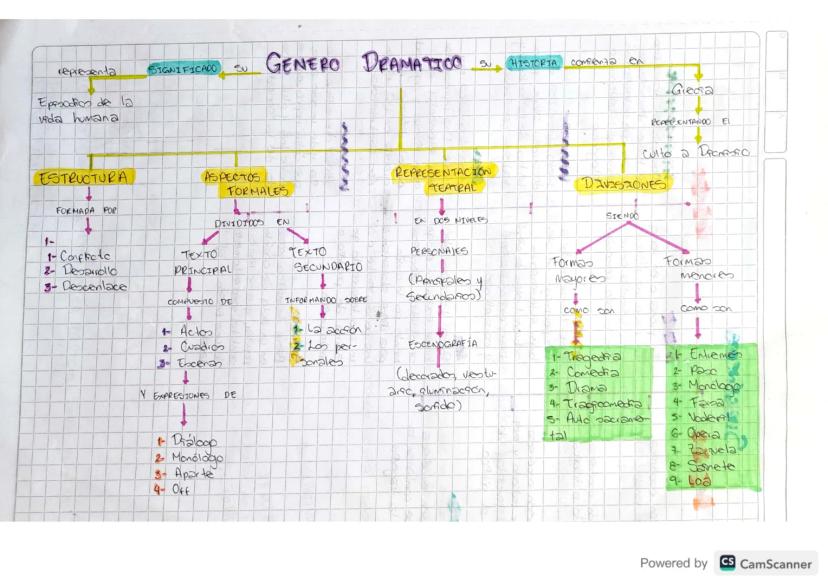 GENERO DRAMATICO
su
SIGNIFICADO
representa
Episodios de la
vida humana
su
HISTORIA
comienza en
Grecia
REPRESENTANDO El
Culto a Dionisio
ESTRUCTURA
FORMADA POR
1-
1- Conflicto
2- Desarrollo
3- Desenlace
ASPECTOS
FORMALES
DIVIDIDOS EN
TEXTO
PRINCIPAL
COMPUESTO DE
1- Actos
2- Cuadros
3- Escenas
Y EXPRESIONES DE
1- Diálogo
2- Monólogo
3- Aparte
4- Off
TEXTO
SECUNDARIO
INFORMANDO SOBRE
1- La acción
2- Los per-
sonales
REPRESENTACION
TEATRAL
EN DOS NIVELES
PERSONAJES
(Principales y
Secundarios)
ESCENOGRAFÍA
(decorados, vestu-
ario, iluminación,
sonido)
DIVISIONES
SIENDO
Formas
Mayores
como son
1- Tragedia
2- Comedia
3- Drama
4- Tragicomedia
5- Auto sacramen
tal
Formas
menores
como son
1- Entremés
2- Paso
3- Monólogo
4- Farsa
5- Vodevil
6- Opera
7- Zarzuela
8- Sainete
9- Loa
Powered by CS CamScanner